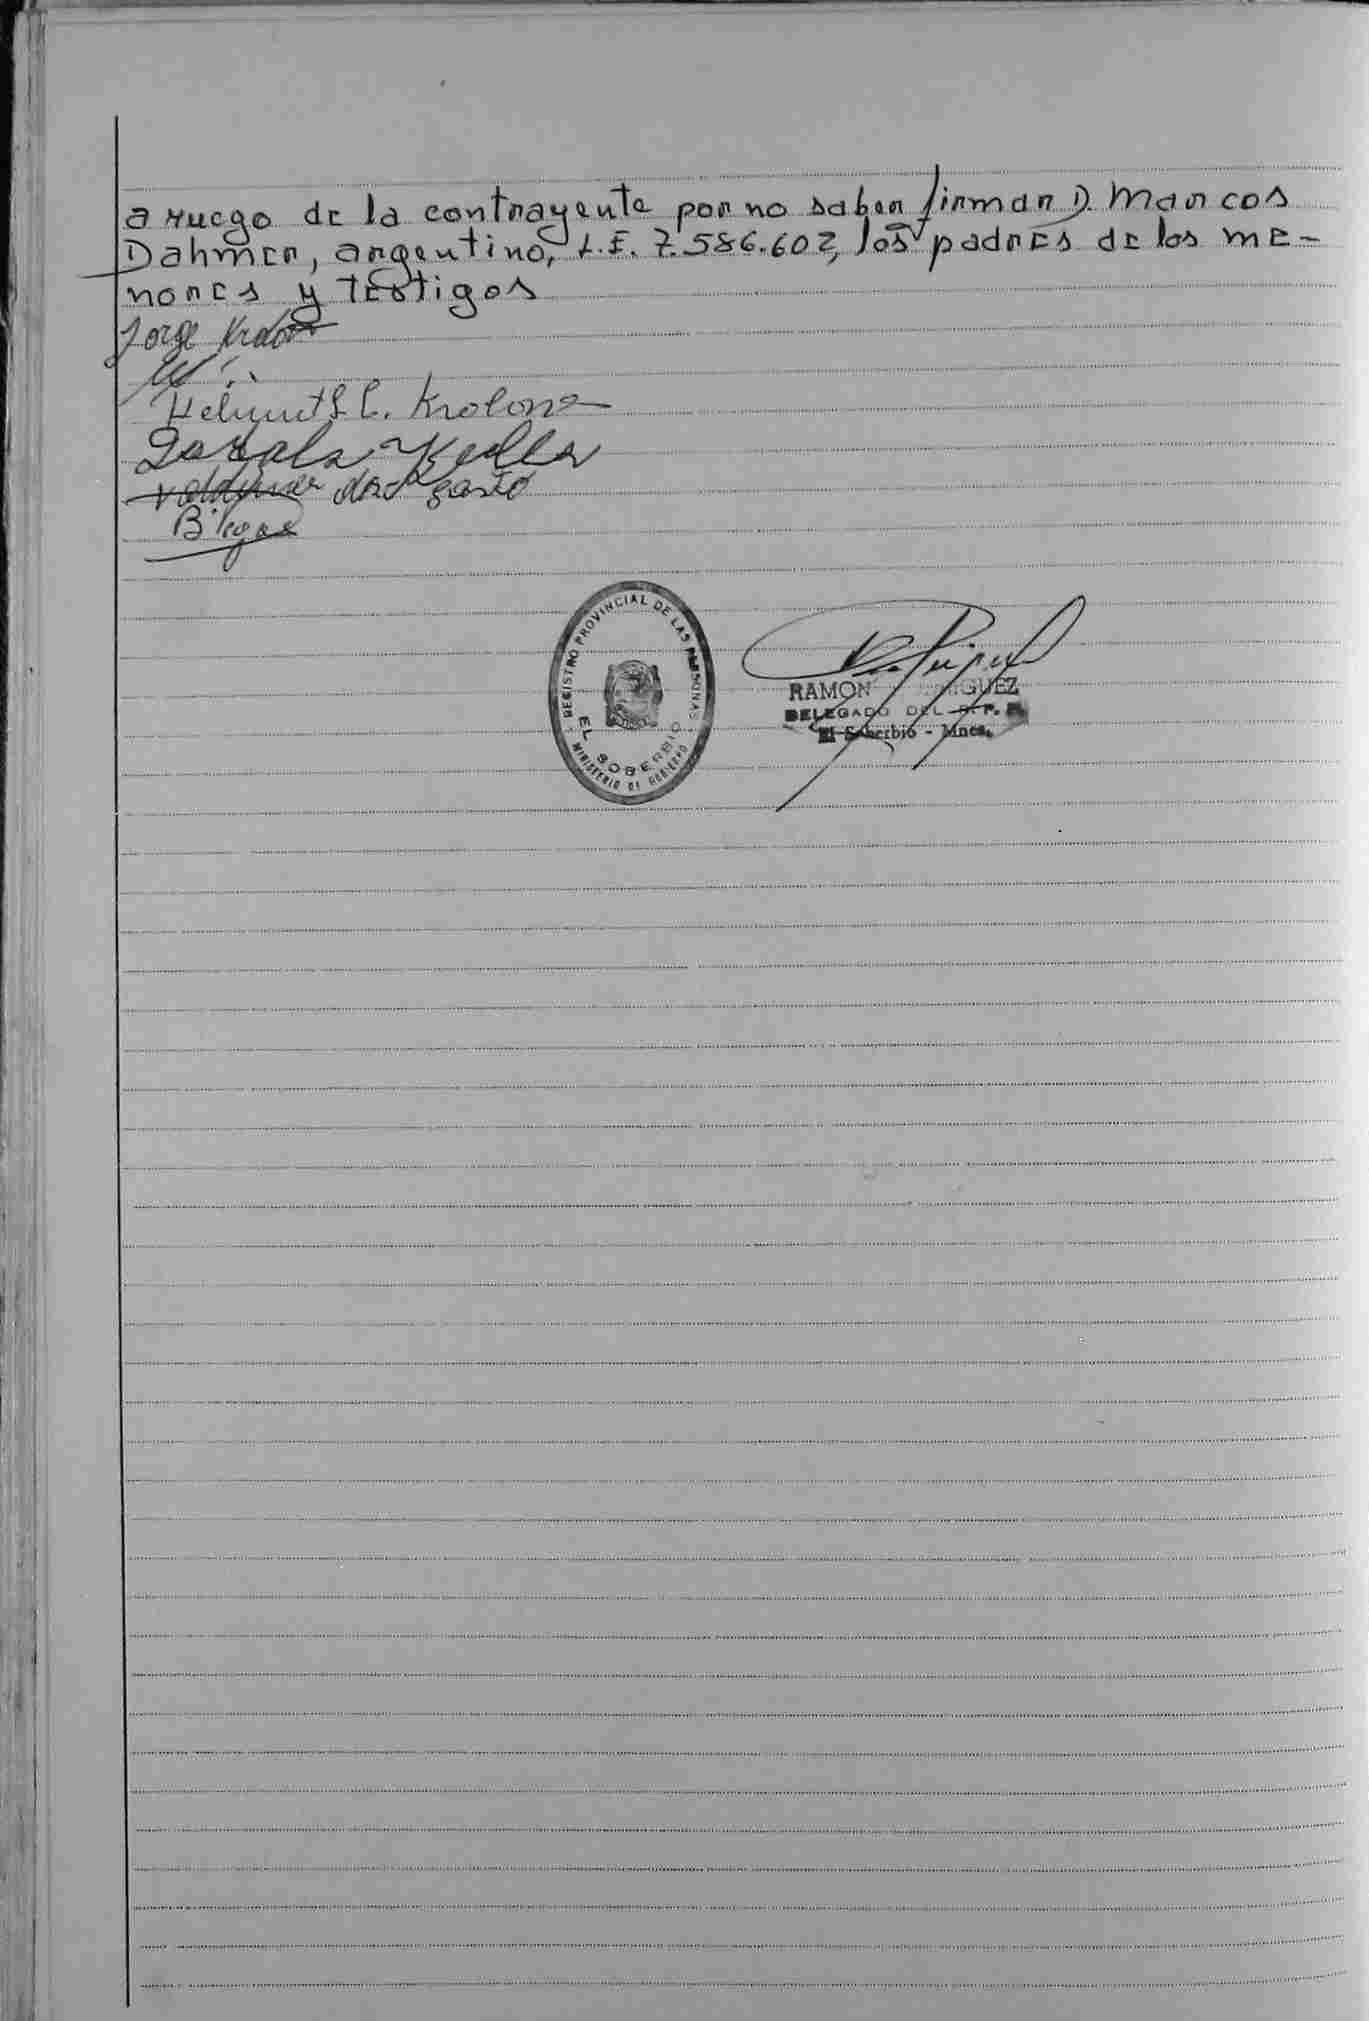 a ruego de la contrayente por no saber firmar D. Marcos
Dahmer, argentino, L.E. 7.586.602, los padres de los me-
nores y testigos
Jorge
Helmuth C.
REGISTRO PROVINCIAL DE LAS PERSONAS
EL SOBERBIO
MINISTERIO DE GOBIERNO
RAMON
DELEGADO DEL R. P. P.
El Soberbio - Mnes.